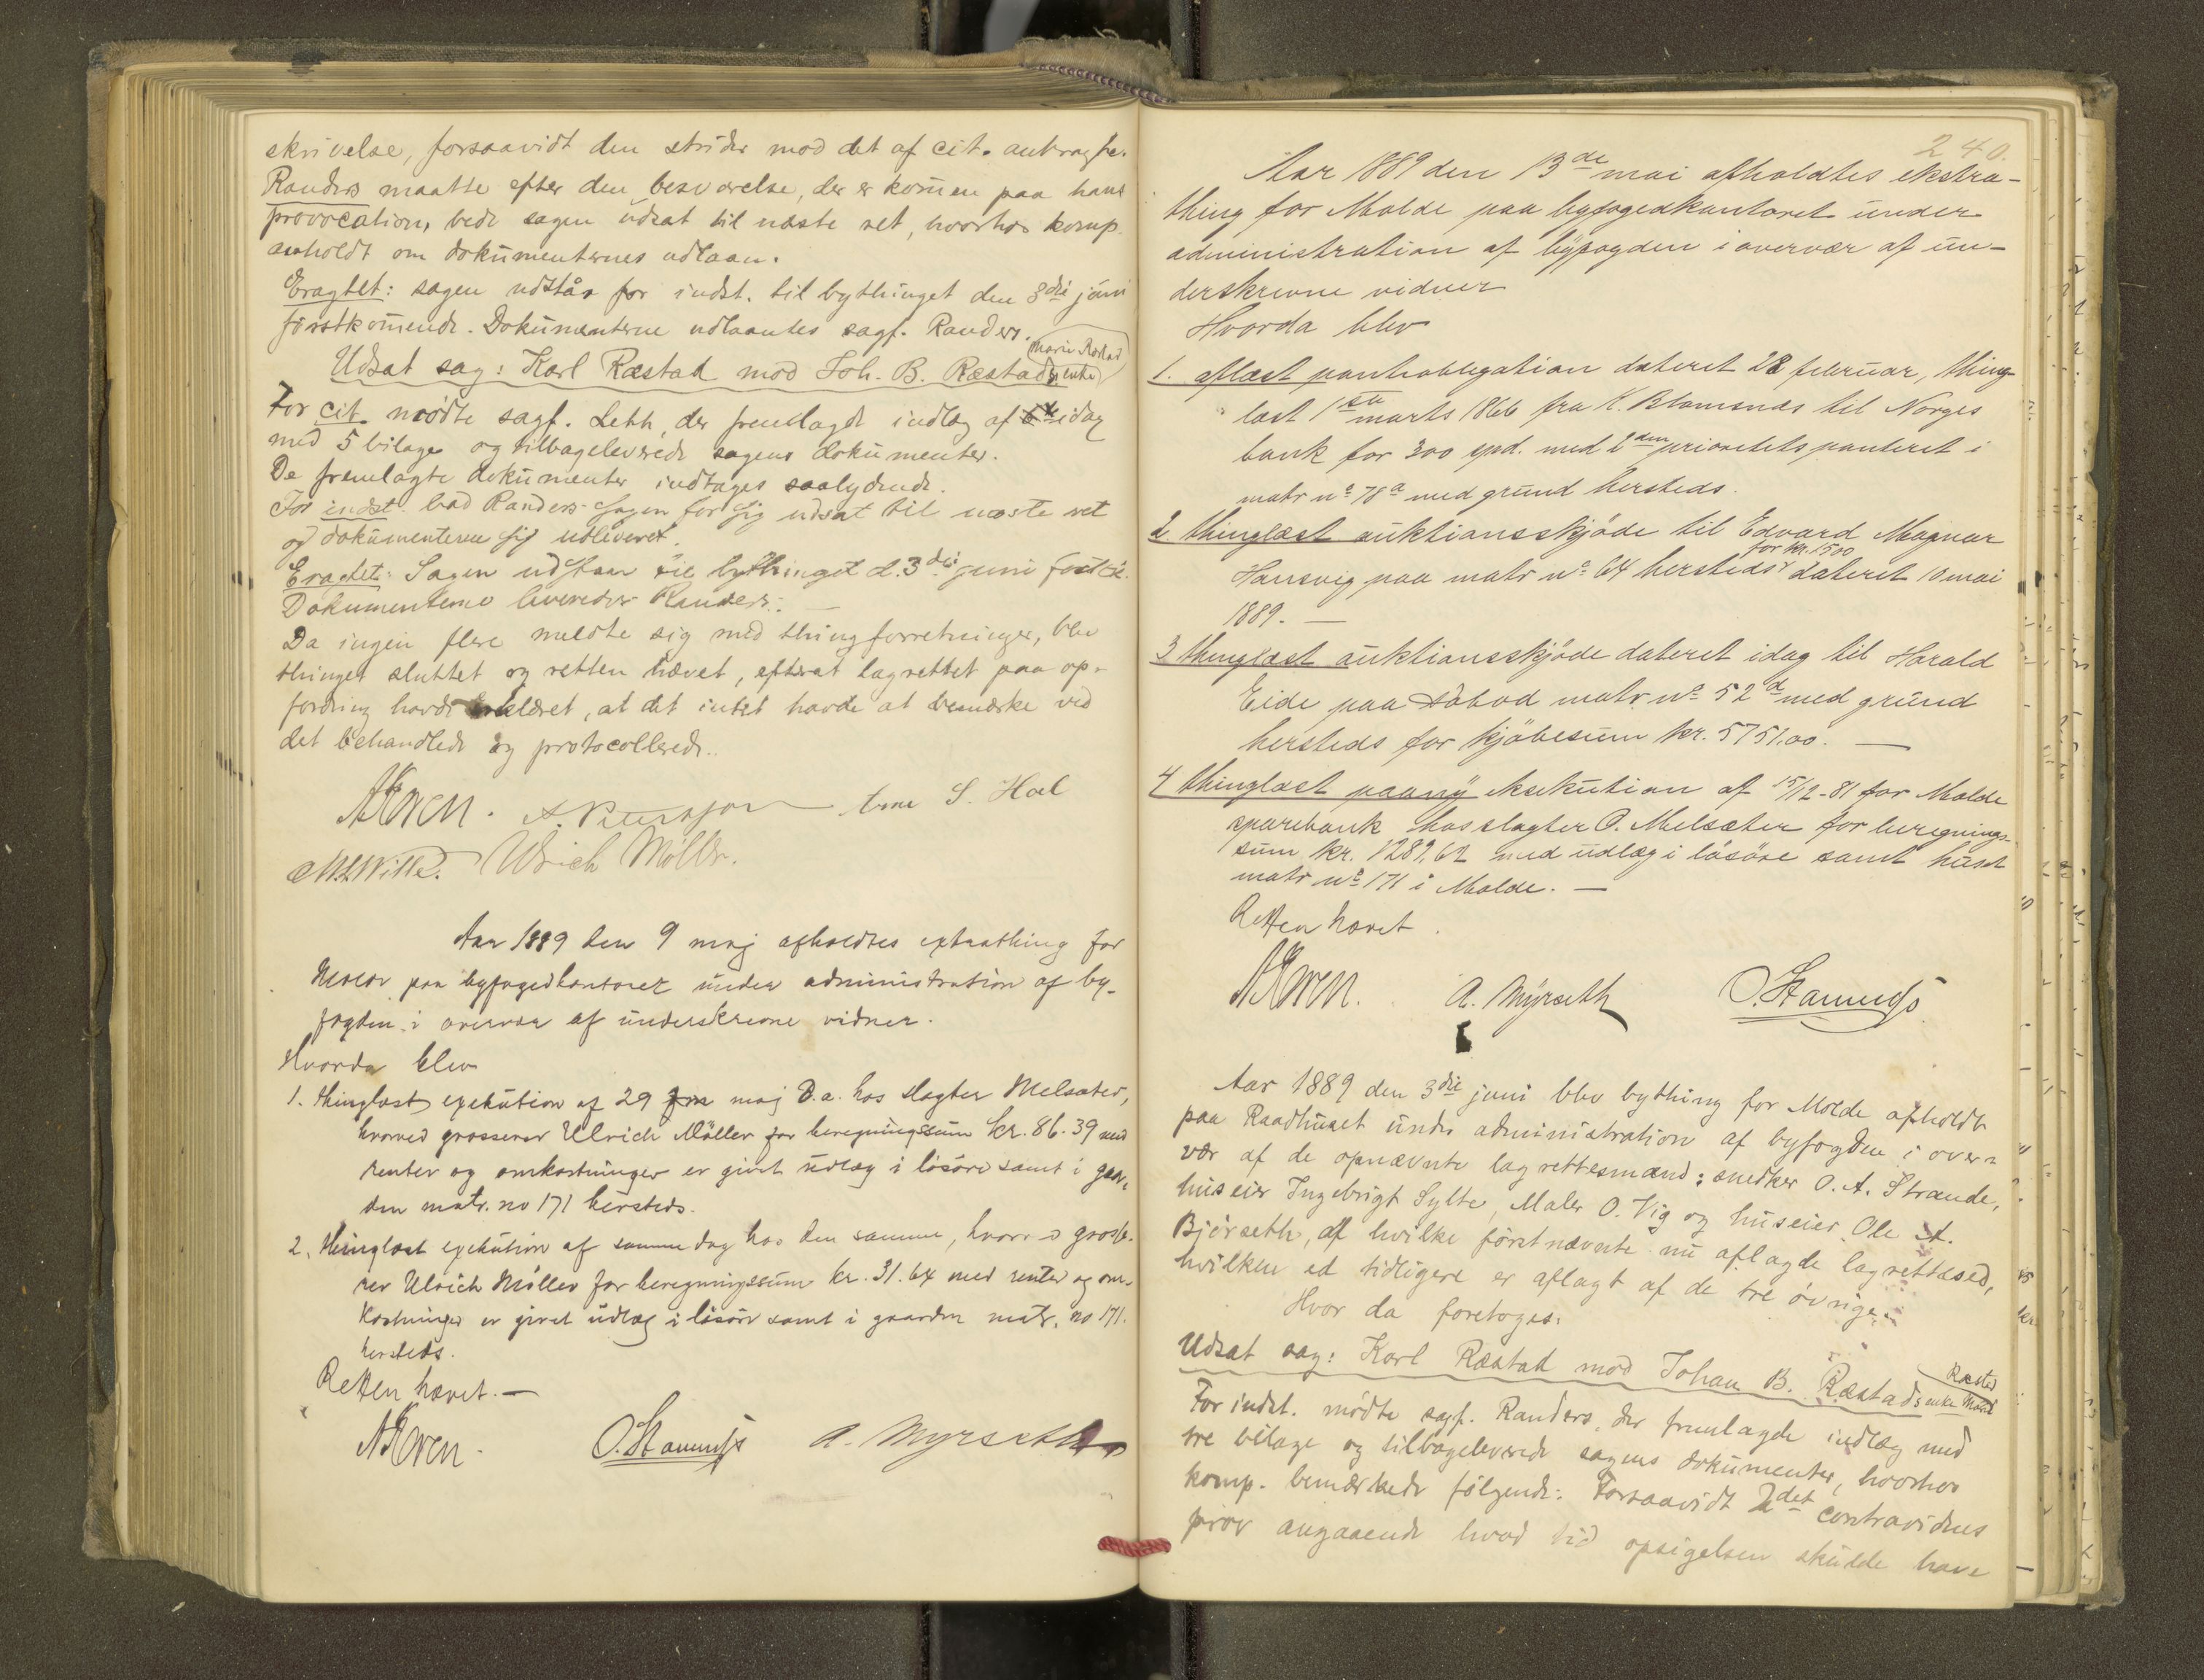 skrivelse, forsaavidt den strider mod det af cit. antragte.
Randers maatte efter den besvarelse, der er kommen paa hans
provocation, bede sagen udsat til næste ret, hvorhos komp.
anholdt om dokumenternes udlaan.
Eragtet: sagen udstår for indst. til bythinget den 3die juni
förstkommende. Dokumenterne udlaantes sagf. Randers.
Udsat sag: Karl Ræstad mod Joh. B. Ræstads enke
Marie Ræstad
For cit. mödte sagf. Leth, der fremlagde indlæg af idag
med 5 bilage og tilbageleverede sagens dokumenter.
De fremlagte dokumenter indtages saalydende.
For indst. bad Randers Sagen for sig udsat til næste ret
og dokumenterne sig udleveret.
Eragtet: Sagen udstaar til bythinget d. 3die juni
Dokumenterne leveredes Randers. —
Da ingen flere meldte sig med thingforretninger, blev
thinget sluttet og retten hævet, efterat lagrettet paa op-
fordring havde erklæret, at det intet havde at bemærke ved
det behandlede og protocollerede.
Arne S. Hoel
Ulrich Möller.
Aar 1889 den 9 maj afholdtes extrathing for
Molde paa byfogedkontoret under administration af by-
fogden i overvær af underskrevne vidner.
Hvorda blev
1. thinglæst exekution af 29 maj D.a. hos slagter Melsæter,
hvorved grosserer Ulrich Möller for beregningssum kr. 86.39 med
renter og omkostninger er givet udlæg i lösöre samt i gaar-
den matr. no 171 hersteds.
2. thinglæst exekution af samme dag hos den samme, hvorved grosse-
rer Ulrich Möller for beregningssum kr. 31.64 med renter og om-
kostninger er givet udlæg i lösöre samt i gaarden matr. no 171.
hersteds.
Retten hævet. —
A. Myrseth
240.
Aar 1889 den 13de mai afholdtes ekstra-
thing for Molde paa byfogedkontoret under
administration af byfogden i overvær af un-
derskrevne vidner
Hvorda blev
1. aflæst panteobligation dateret 28 februar, thing-
læst 1ste marts 1866 fra K. til Norges
bank for 300 spd. med prioritets panteret i
matr no 78a med grund hersteds.
2. thinglæst auktionsskjöde til Edvard Magnar
for kr. 1500
Hansvig paa matr no 64 hersteds dateret 10 mai
1889. —
3 thinglæst auktionsskjöde dateret idag til Harald
Eide paa Søbod matr no 52d med grund
hersteds for kjöbesum kr. 5751.00. —
4 thinglæst paany eksekution af 15/12-81 for Molde
sparebank hos slagter O. Melsæter for beregnings-
sum kr. 1289,62 med udlæg i lösöre samt huset
matr no 171 i Molde. —
Retten hævet.
A. Myrseth
Aar 1889 den 3die juni blev bything for Molde afholdt
paa Raadhuset under administration af byfogden i over-
vær af de opnævnte lagrettesmænd: snedker O. A. Strande,
huseier Ingebrigt Sylte, Maler O. Vig og huseier Ole A.
Björseth, af hvilke förstnævnte nu aflagde lagrettesed,
hvilken ed tidligere er aflagt af de tre övrige.
Hvor da foretoges:
Udsat sag: Karl Ræstad mod Johan B. Ræstads enke Marie
Ræstad
For indst. mödte sagf. Randers, der fremlagde indlæg med
tre bilage og tilbageleverede sagens dokumenter, hvorhos
komp. bemærkede fölgende: Forsaavidt 2det contravidnes
prov angaaende hvad tid opsigelsen skulde have